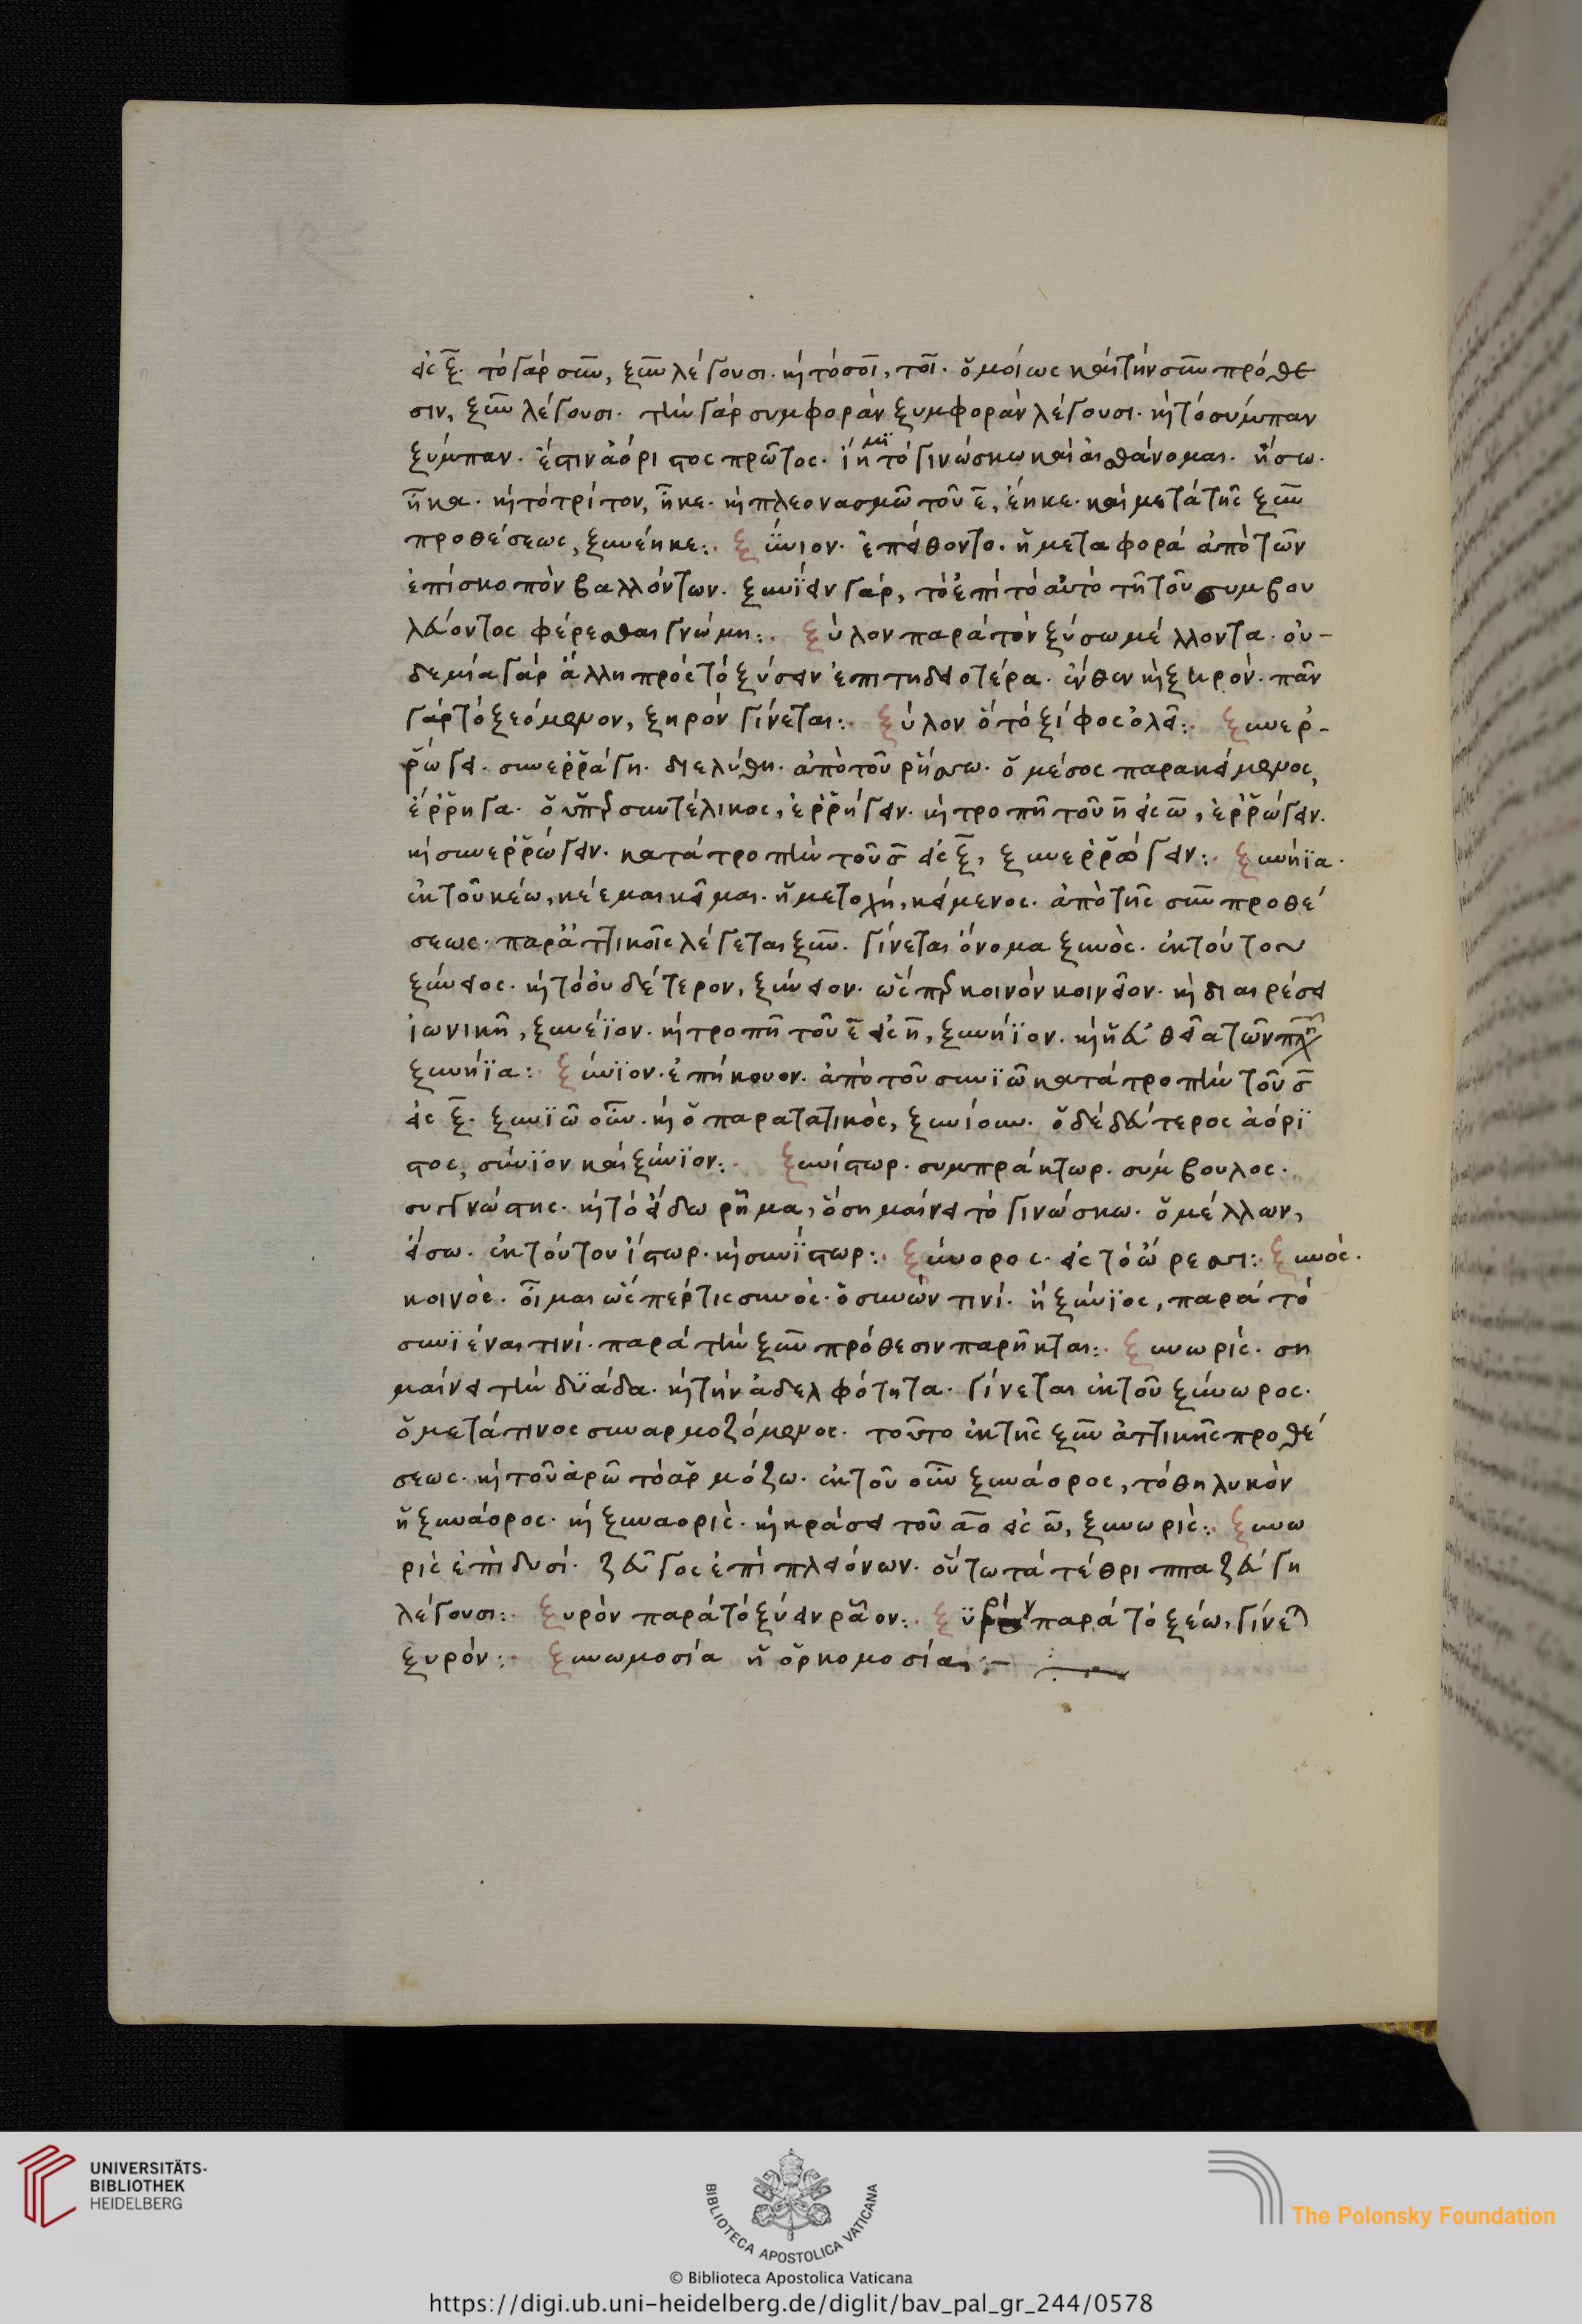 εἰς ξ̅. τὸ γὰρ σὺν, ξὺν λέγουσι. καὶ τὸ σοῖ, τοῖ. ὁμοίως καὶ τὴν σὺν πρόθε
σιν, ξὺν λέγουσι. τὴν γὰρ συμφορὰν ξυμφορὰν λέγουσι. καὶ τὸ σύμπαν
ξύμπαν. ἔστιν ἀόριστος πρῶτος. ἵημι τὸ γινώσκω καὶ αἰσθάνομαι. ἥσω.
ἧκα. καὶ τὸ τρίτον, ἧκε. καὶ πλεονασμῶ τοῦ ε̅, ἕηκε. καὶ μετὰ τῆς ξὺν
προθέσεως, ξυνέηκε:. ξύνιον. ἐπείθοντο. ἡ μεταφορὰ ἀπὸ τῶν
ἐπίσκοπὸν βαλλόντων. ξυνϊεῖν γάρ, τὸ ἐπὶ τὸ αὐτὸ τῆ τοῦ συμβου
λεύοντος φέρεσθαι γνώμη:. ξύλον παρὰ τὸν ξύσω μέλλοντα. οὐ-
δεμία γὰρ ἄλλη πρὸς τὸ ξύσειν ἐπιτηδειοτέρα. ἔνθεν καὶ ξηρόν. πᾶν
γὰρ τὸ ξεόμενον, ξηρὸν γίνεται:. ξύλον ὅ τὸ ξίφος ὁλεῖ:. ξυνερ-
ρώγει. συνερράγη. διελύθη. ἀπὸ τοῦ ρήσσω. ὁ μέσος παρακείμενος,
ἔρρηγα. ὁ ὑπερσυντέλικος, ἐρρήγειν. καὶ τροπῆ τοῦ η̅ εἰς ω̅, ἐρρώγειν.
καὶ συνερρώγειν. κατὰ τροπὴν τοῦ σ̅ εἰς ξ̅, ξυνερρώγειν:. ξυνήϊα.
ἐκ τοῦ κέω, κέεμαι κεῖμαι. ἡ μετοχή, κείμενος. ἀπὸ τῆς σὺν προθέ
σεως. παρ' ἀττικοῖς λέγεται ξὺν. γίνεται ὄνομα ξυνὸς. ἐκ τούτου
ξύνειος. καὶ τὸ οὐδέτερον, ξύνειον. ὥσπερ κοινὸν κοινεῖον. καὶ διαιρέσει
ἰωνικῆ, ξυνέϊον. καὶ τροπῆ τοῦ ε̅ εἰς η̅, ξυνήϊον. καὶ ἡ εὐθεῖα τῶν πλη
ξυνήϊα: ξύνϊον. ἐπήκουον. ἀπὸ τοῦ συνϊῶ κατὰ τροπὴν τοῦ σ̅
εἰς ξ̅. ξυνϊῶ οὖν. καὶ ὁ παρατατικὸς, ξυνίουν. ὁ δὲ δεύτερος ἀόρι
στος, σύνϊον καὶ ξύνϊον:. ξυνίστωρ. συμπράκτωρ. σύμβουλος.
συγγνώστης. καὶ τὸ εἴδω ρῆμα, ὃ σημαίνει τὸ γινώσκω. ὁ μέλλων,
εἴσω. ἐκ τούτου ἵστωρ. καὶ συνΐστωρ:. ξύνορος. εἰς τὸ ὤρεσσι:. ξυνός.
κοινὸς. οἶμαι ὥσπέρ τις συνὸς. ὁ συνὼν τινί. ἢ ξύνϊος, παρὰ τὸ
συνϊέναι τινί. παρὰ τὴν ξὺν πρόθεσιν παρῆκται:. ξυνωρίς. ση
μαίνει τὴν δυάδα. καὶ τὴν ἀδελφότητα. γίνεται ἐκ τοῦ ξύνωρος.
ὁ μετά τινος συναρμοζόμενος. τοῦτο ἐκ τῆς ξὺν ἀττικῆς προθέ
σεως. καὶ τοῦ ἀρῶ τὸ ἁρμόζω. ἐκ τοῦ οὖν ξυνάορος, τὸ θηλυκὸν
ἡ ξυνάορος. καὶ ξυναορὶς. καὶ κράσει τοῦ α̅ο̅ εἰς ω̅, ξυνωρίς:. ξυνω
ρὶς ἐπὶ δυσί. ζεῦγος ἐπὶ πλειόνων. οὕτω τὰ τέθριππα ζεύγη
λέγουσι:. ξυρὸν παρὰ τὸ ξύειν ρᾶον:. ξϋρὶν παρὰ τὸ ξέω, γίνεται
ξυρόν:. ξυνωμοσία ἡ ὁρκομοσία:-
UNIVERSITÄTS-
BIBLIOTHEK
HEIDELBERG
BIBLIOTECA APOSTOLICA VATICANA
The Polonsky Foundation
© Biblioteca Apostolica Vaticana
https://digi.ub.uni-heidelberg.de/diglit/bav_pal_gr_244/0578